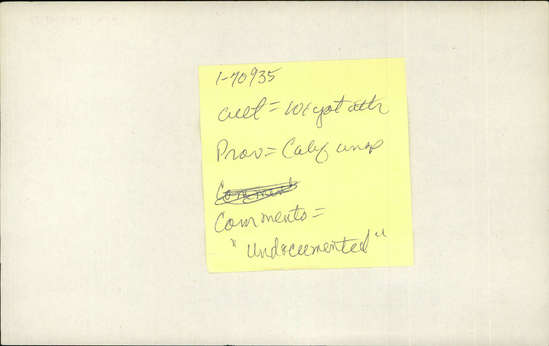 1-70935
cult = Wiyot attr
Prov = Calif unsp
Comment
Comments =
"Undocumented"